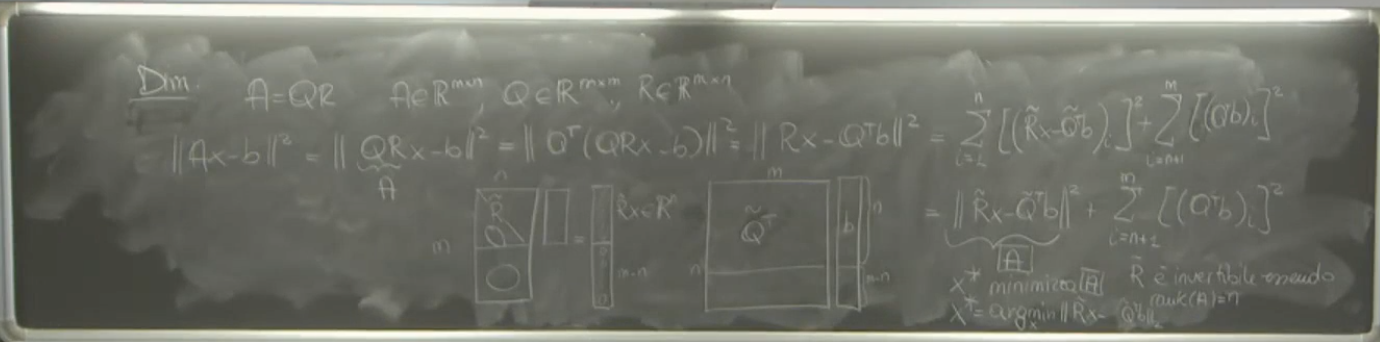 Dim. A=QR A∈ℝ^{m×n}, Q∈ℝ^{m×m}, R∈ℝ^{m×n}
||Ax-b||² = || QRx-b||² = || Qᵀ(QRx-b)||² = || Rx-Qᵀb||² = Σ_{i=1}^{n} [(R̃x-Q̃ᵀb)_i]² + Σ_{i=n+1}^{m} [(Qᵀb)_i]²
A
= || R̃x-Q̃ᵀb||² + Σ_{i=n+1}^{m} [(Qᵀb)_i]²
A
n
m
R̃
0
0
=
0
0
R̃x∈ℝⁿ
m-n
m
Q̃ᵀ
n
b
n
m-n
x* minimizza A R̃ è invertibile essendo
rank(A)=n
x* = argmin_x || R̃x- Q̃ᵀb||₂